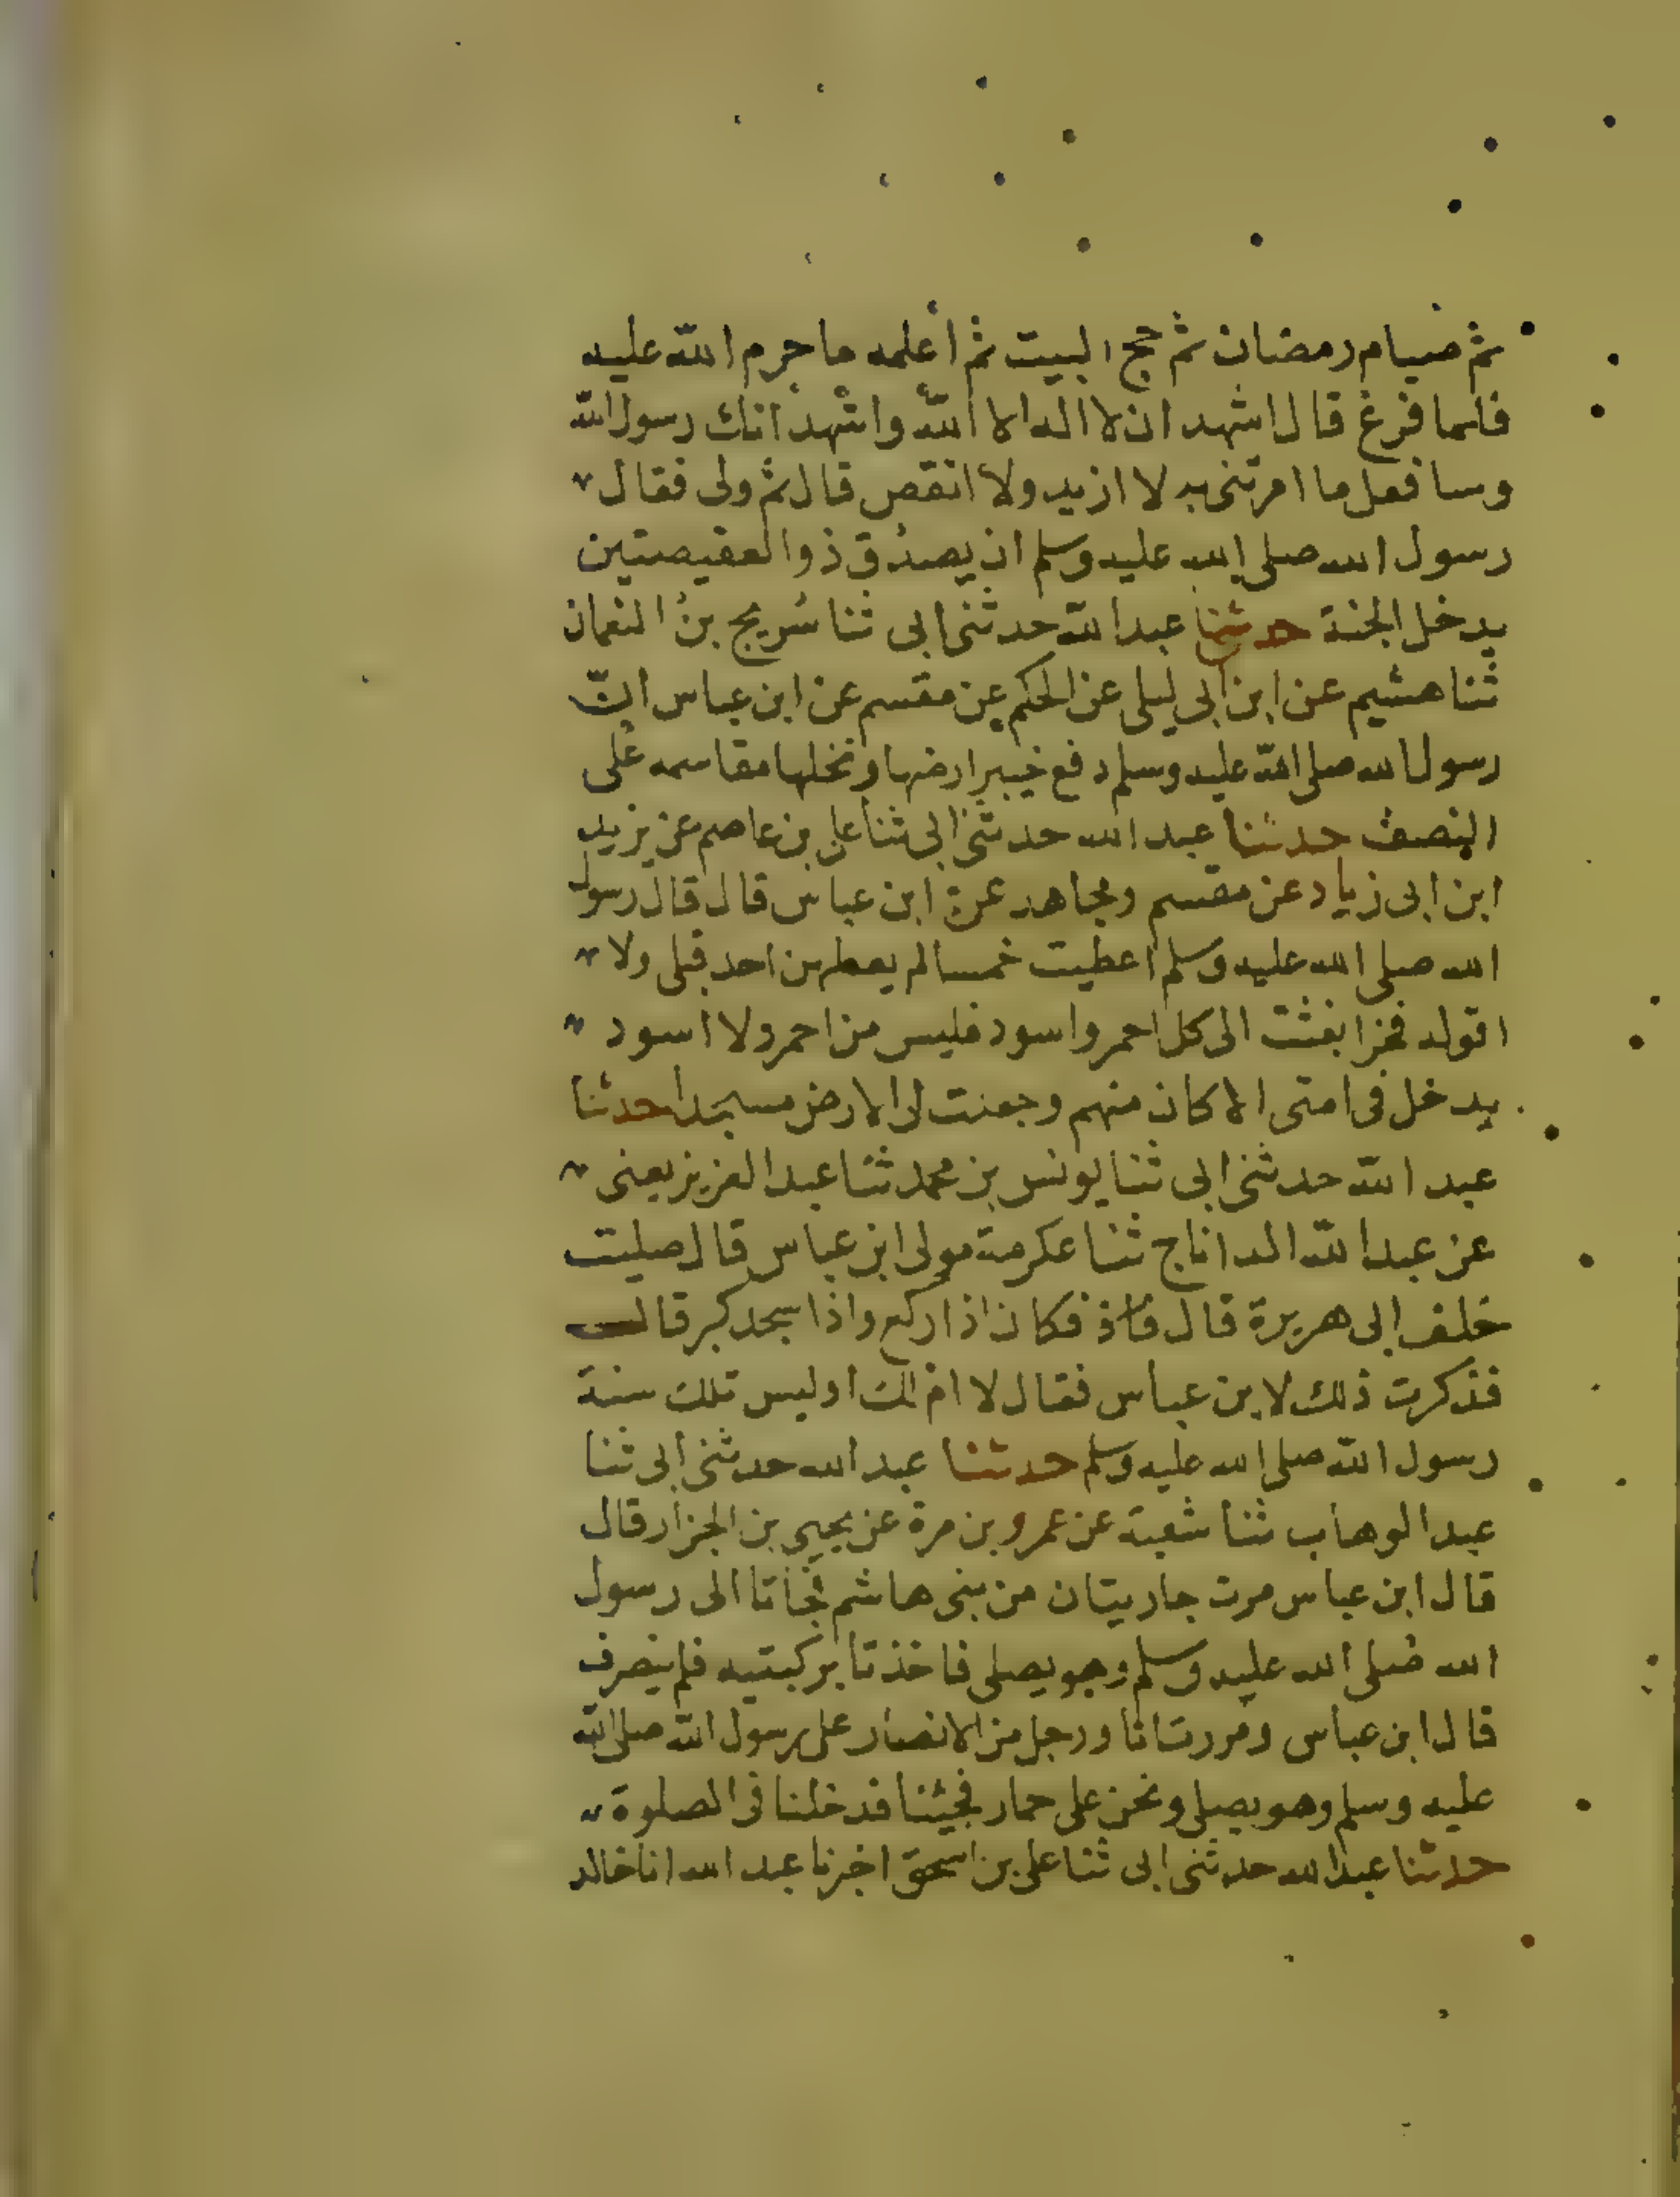 ثم صيام رمضان ثم حج البيت ثم أعلمه ما حرم الله عليه
فلما فرغ قال اشهد ان لا اله الا الله واشهد انك رسول الله
وسافعل ما امرتني به لا ازيد ولا انقص قال ثم ولى فقال
رسول الله صلى الله عليه وسلم ان يصدق ذو العقيصتين
يدخل الجنة حدثنا عبد الله حدثني ابي ثنا سُريج بن النعمان
ثنا هشيم عن ابن ابي ليلى عن الحكم عن مقسم عن ابن عباس انّ
رسول الله صلى الله عليه وسلم دفع خيبر ارضها ونخلها مقاسمه على
النصف حدثنا عبد الله حدثني ابي ثنا علي بن عاصم عن يزيد
ابن ابي زياد عن مقسم ومجاهد عن ابن عباس قال قال رسول
الله صلى الله عليه وسلم اعطيت خمسا لم يعطهن احد قبلي ولا
اقوله فخرا بعثت الى كل احمر واسود فليس من احمر ولا اسود
يدخل في امتي الا كان منهم وجعلت لي الارض مسجدا حدثنا
عبد الله حدثني ابي ثنا يونس بن محمد ثنا عبد العزيز يعني
عن عبد الله الداناج ثنا عكرمة مولى ابن عباس قال صليت
خلف ابي هريرة قال فكان اذا ركع واذا سجد كبر قال
فذكرت ذلك لابن عباس فقال لا ام لك اوليس تلك سنة
رسول الله صلى الله عليه وسلم حدثنا عبد الله حدثني ابي ثنا
عبد الوهاب ثنا شعبة عن عمرو بن مرة عن يحيى بن الجزار قال
قال ابن عباس مرت جاريتان من بني هاشم فجاتا الى رسول
الله صلى الله عليه وسلم وهو يصلي فاخذتا بركبتيه فلم ينصرف
قال ابن عباس ومررت انا ورجل من الانصار على رسول الله صلى الله
عليه وسلم وهو يصلي ونحن على حمار فجئنا فدخلنا في الصلوة
حدثنا عبد الله حدثني ابي ثنا علي بن اسحق اخبرنا عبد الله انا خالد